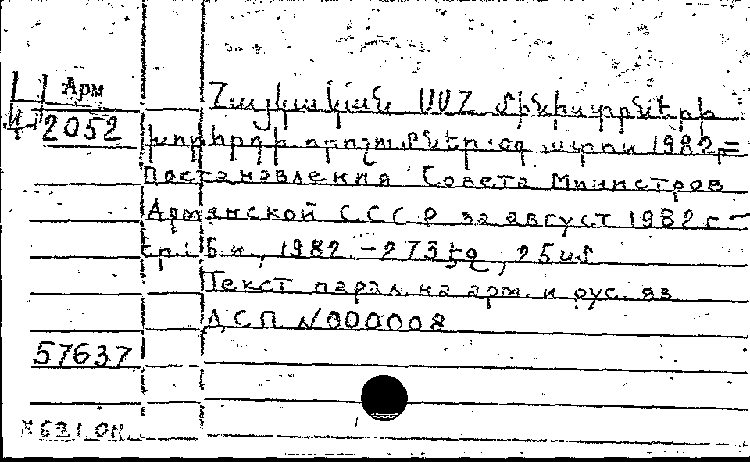 Арм
Հայկական ՍՍՀ մինիստրների
2052
խորհրդի որոշումներ. օգոստոս 1982թ =
Постановления Совета Министров
Армянской ССР за август 1982 г. -
Եր.: Б.и., 1982. - 273 էջ, 25 սմ
Текст парал. на арм. и рус. яз
ДСП N 000008
57637